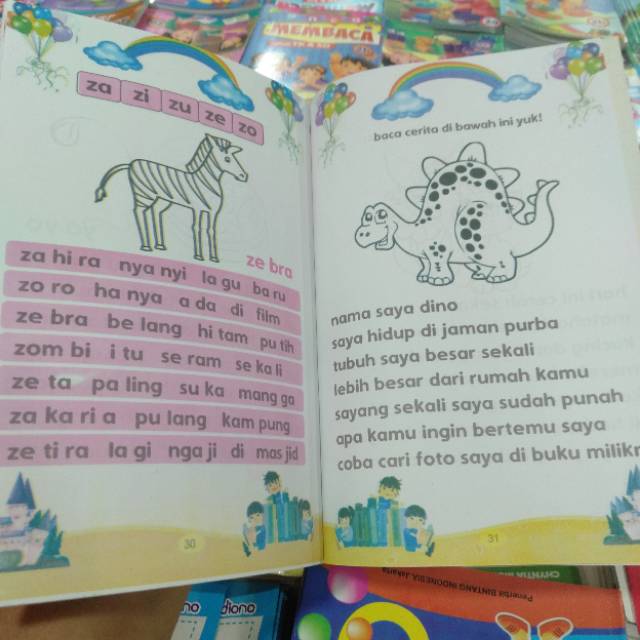 MEMBACA
za zi zu ze zo
ze bra
za hi ra nya nyi la gu ba ru
zo ro ha nya a da di film
ze bra be lang hi tam pu tih
zom bi i tu se ram se ka li
ze ta pa ling su ka mang ga
za ka ri a pu lang kam pung
ze ti ra la gi nga ji di mas jid
30
baca cerita di bawah ini yuk!
nama saya dino
saya hidup di jaman purba
tubuh saya besar sekali
lebih besar dari rumah kamu
sayang sekali saya sudah punah
apa kamu ingin bertemu saya
coba cari foto saya di buku
31
Penerbit BINTANG INDONESIA Jakarta